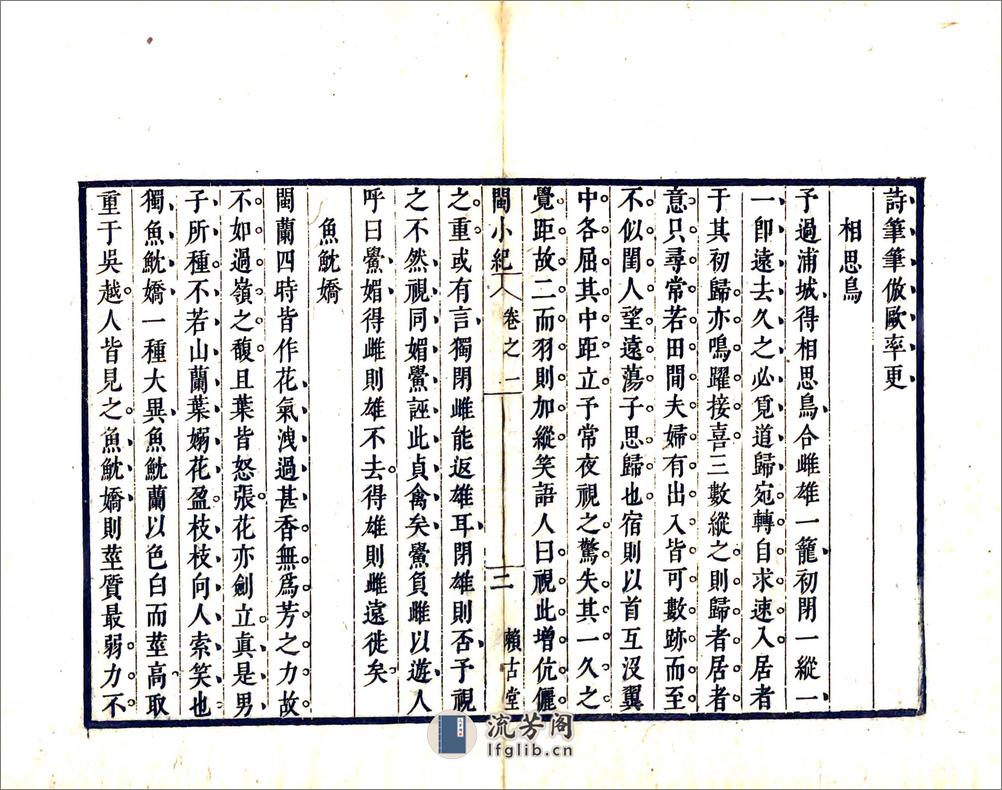 詩筆筆倣歐率更
相思鳥
予過浦城得相思鳥合雌雄一籠初閉一縱一
一卽遠去久之必覓道歸宛轉自求速入居者
于其初歸亦鳴躍接喜三數縱之則歸者居者
意只尋常若田間夫婦有出入皆可數跡而至
不似閨人望遠蕩子思歸也宿則以首互沒翼
中各屈其中距立予常夜視之驚失其一久之
覺距故二而羽則加縱笑語人曰視此增伉儷
閩小紀 卷之一 三 賴古堂
之重或有言獨閉雌能返雄耳閉雄則否予視
之不然視同媚鷽誣此貞禽矣鷽負雌以遊人
呼曰鷽媚得雌則雄不去得雄則雌遠徙矣
魚魫嬌
閩蘭四時皆作花氣洩過甚香無爲芳之力故
不如過嶺之馥且葉皆怒張花亦劍立真是男
子所種不若山蘭葉嫋花盈枝枝向人索笑也
獨魚魫嬌一種大異魚魫蘭以色白而莖高取
重于吳越人皆見之魚魫嬌則莖質最弱力不
流芳阁
lfglib.cn